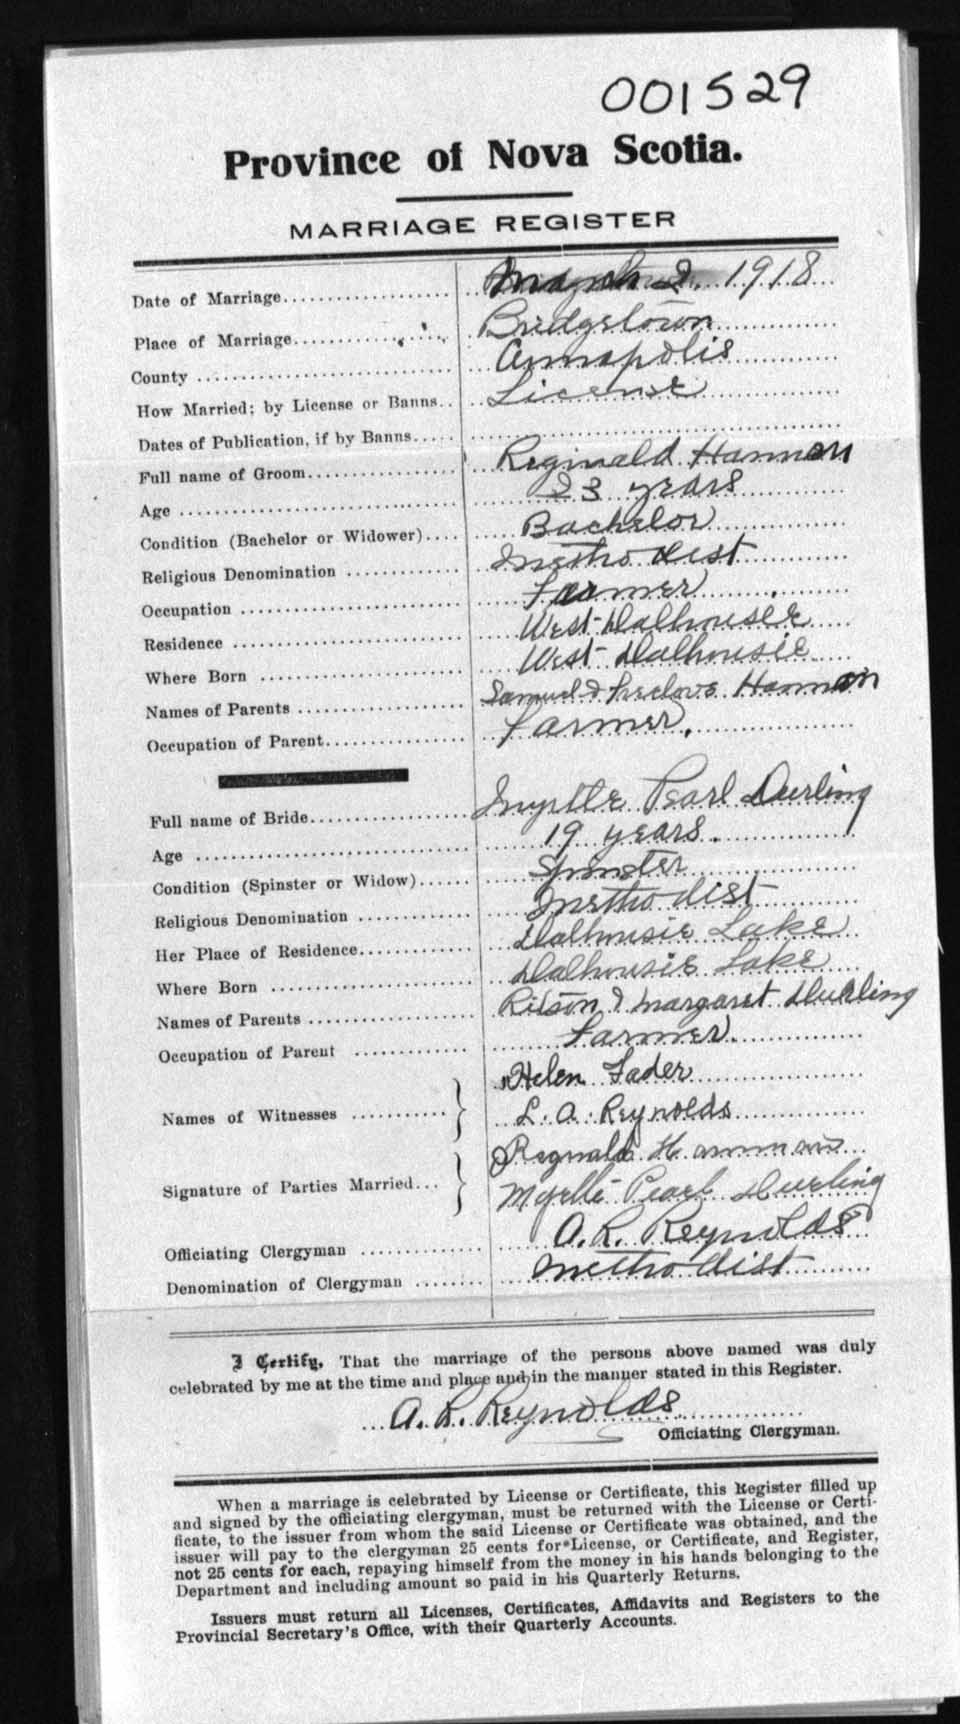 001529
Province of Nova Scotia.
MARRIAGE REGISTER
Date of Marriage.................... March 2. 1918
Place of Marriage.................... Bridgetown
County .................... Annapolis
How Married; by License or Banns.. License
Dates of Publication, if by Banns.....
Full name of Groom.................... Reginald Hannam
Age .................... 23 years
Condition (Bachelor or Widower).... Bachelor
Religious Denomination .................... Methodist
Occupation .................... Farmer
Residence .................... West Dalhousie
Where Born .................... West Dalhousie
Names of Parents .................... Samuel & Hannam
Occupation of Parent.................... Farmer.
Full name of Bride.................... Myrtle Pearl Durling
Age .................... 19 years.
Condition (Spinster or Widow)...... Spinster
Religious Denomination .................... Methodist
Her Place of Residence.................... Dalhousie Lake
Where Born .................... Dalhousie Lake
Names of Parents .................... & Margaret Durling
Occupation of Parent .................... Farmer.
Names of Witnesses .................... } Helen Fader
L. A. Reynolds
Signature of Parties Married... } Reginald Hannam
Myrtle Pearl Durling
Officiating Clergyman .................... A. R. Reynolds
Denomination of Clergyman ........ Methodist
I Certify, That the marriage of the persons above named was duly
celebrated by me at the time and place and in the manner stated in this Register.
A. R. Reynolds
Officiating Clergyman.
When a marriage is celebrated by License or Certificate, this Register filled up
and signed by the officiating clergyman, must be returned with the License or Certi-
ficate, to the issuer from whom the said License or Certificate was obtained, and the
issuer will pay to the clergyman 25 cents for License, or Certificate, and Register,
not 25 cents for each, repaying himself from the money in his hands belonging to the
Department and including amount so paid in his Quarterly Returns.
Issuers must return all Licenses, Certificates, Affidavits and Registers to the
Provincial Secretary's Office, with their Quarterly Accounts.